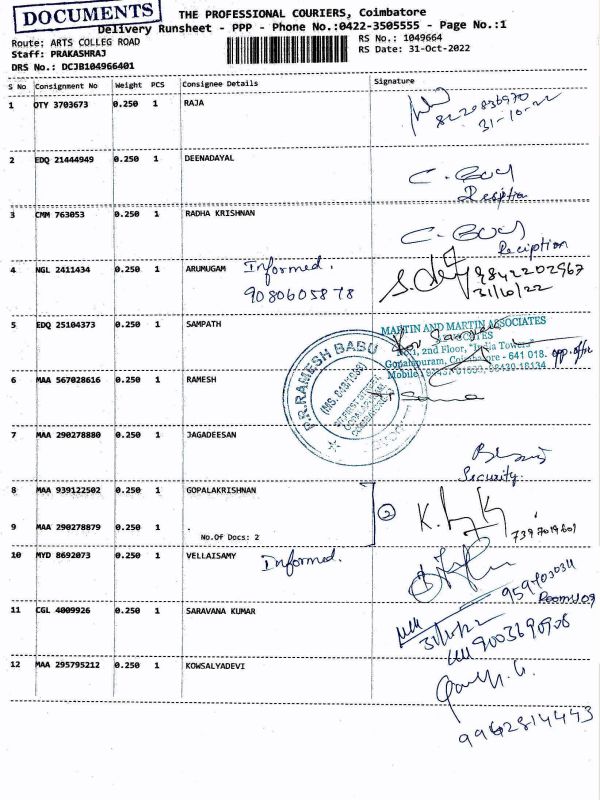 DOCUMENTS
THE PROFESSIONAL COURIERS, Coimbatore
Delivery Runsheet - PPP - Phone No.:0422-3505555 - Page No.:1
Route: ARTS COLLEG ROAD
RS No.: 1049664
Staff: PRAKASHRAJ
RS Date: 31-Oct-2022
DRS No.: DCJB104966401
S No Consignment No Weight PCS Consignee Details Signature
1 OTY 3703673 0.250 1 RAJA
8220836970
31-10-22
2 EDQ 21444949 0.250 1 DEENADAYAL
3 CMM 763053 0.250 1 RADHA KRISHNAN
Reciption
4 NGL 2411434 0.250 1 ARUMUGAM Informed.
9842202967
9080605878
31/10/22
5 EDQ 25104373 0.250 1 SAMPATH
MARTIN AND MARTIN ASSOCIATES
2nd Floor, "India Towers"
Gopalapuram, Coimbatore - 641 018.
Mobile
P.R.RAMESH BABU
6 MAA 567028616 0.250 1 RAMESH
7 MAA 290278880 0.250 1 JAGADEESAN
Security.
8 MAA 939122502 0.250 1 GOPALAKRISHNAN
2
9 MAA 290278879 0.250 1 .
No.Of Docs: 2
10 MYD 8692073 0.250 1 VELLAISAMY Informed.
11 CGL 4009926 0.250 1 SARAVANA KUMAR
9003690908
12 MAA 295795212 0.250 1 KOWSALYADEVI
9962814443